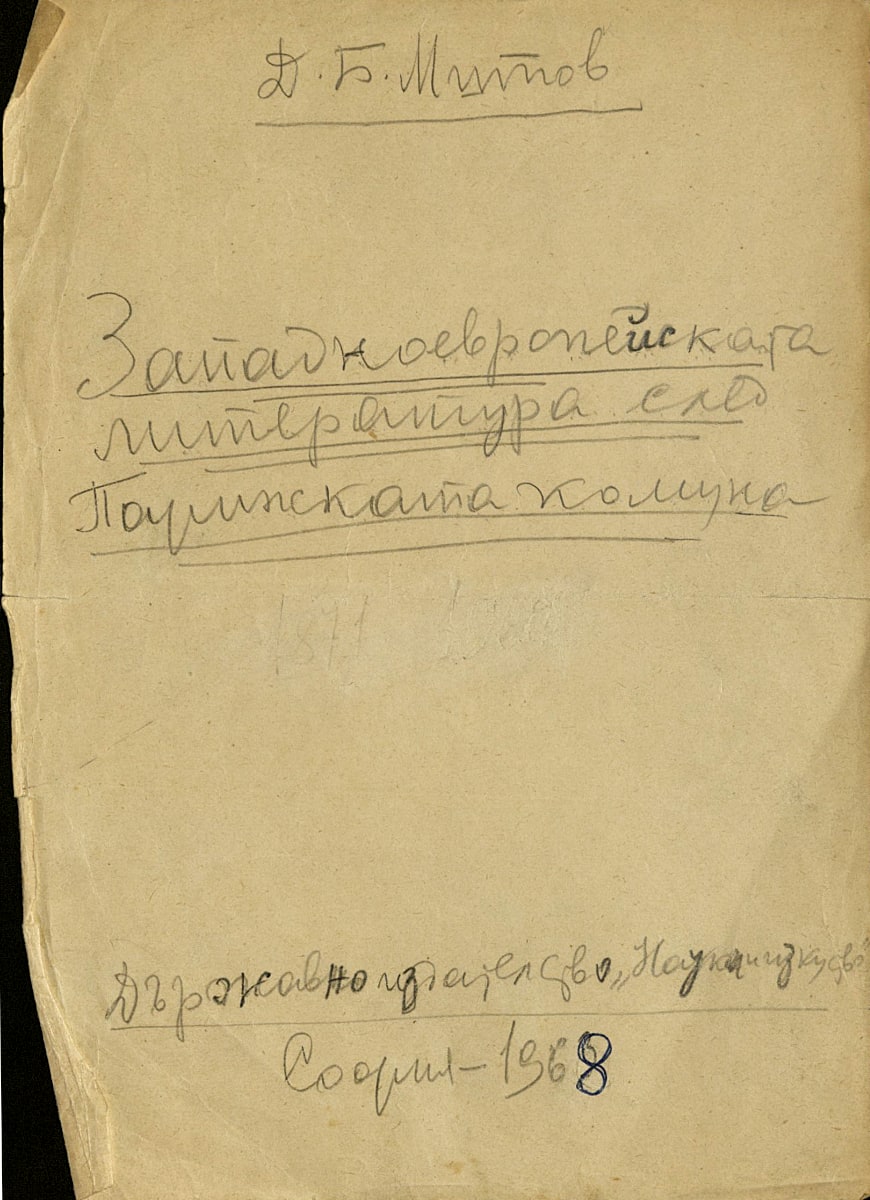 Д. Б. Митов
Западноевропейската
литература след
Парижката комуна
1871
Държавно издателство „Наука и изкуство"
София – 1968